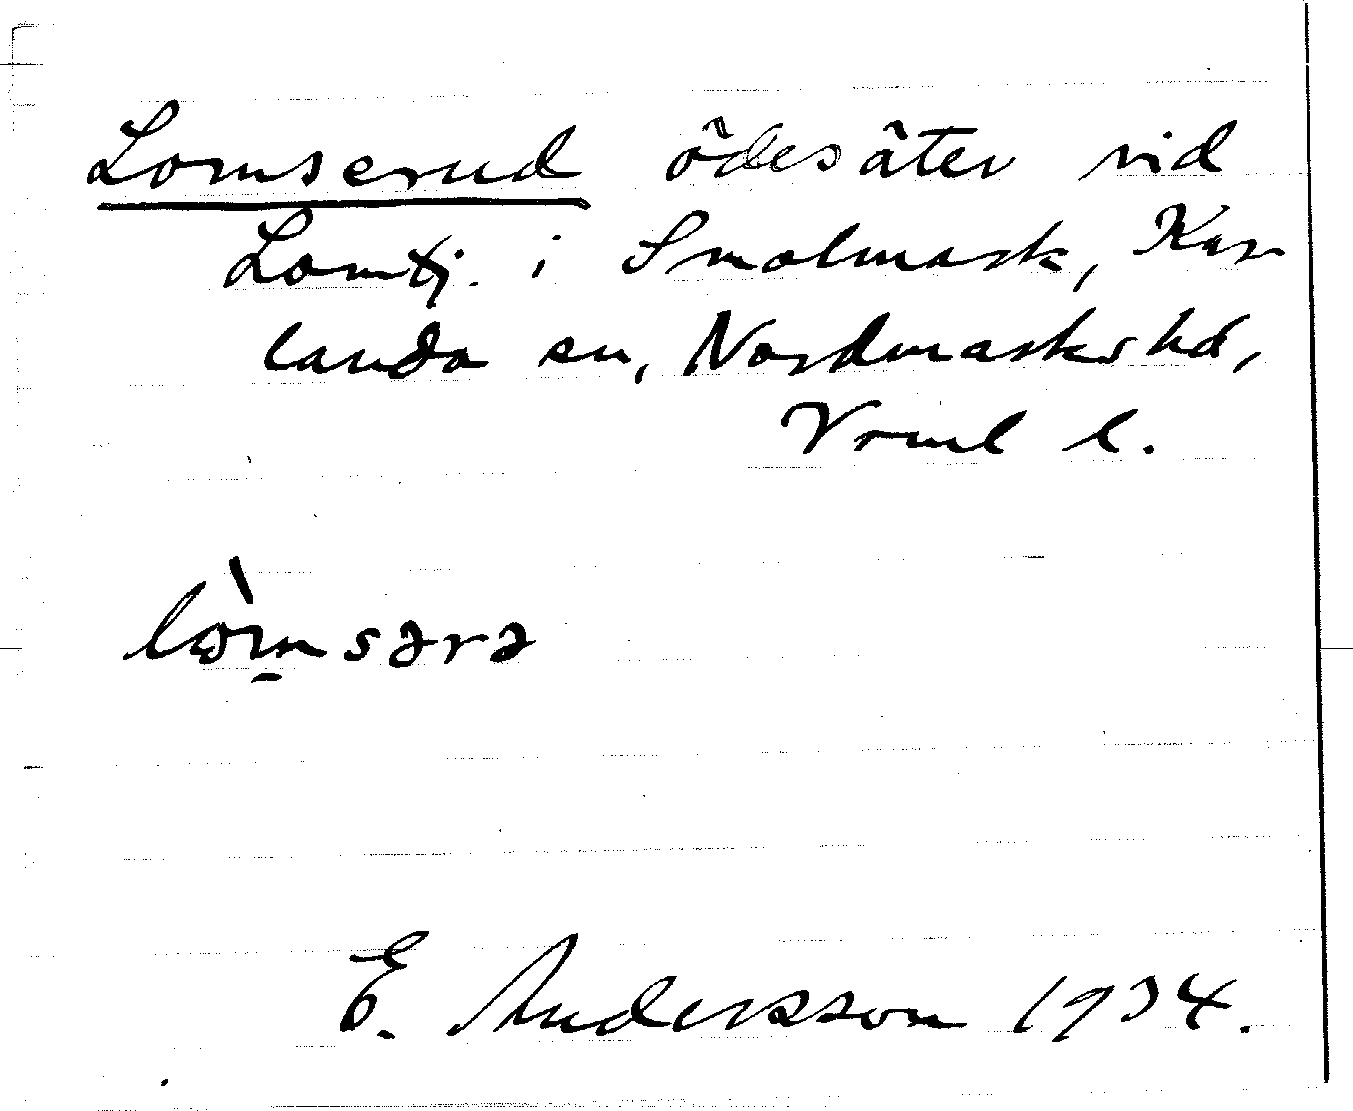 Lomserud ödesäter vid
Lomtj. i Smolmark, Kar
landa sn, Nordmarks hd,
Vrml l.
lòmsərə
E. Andersson 1934.